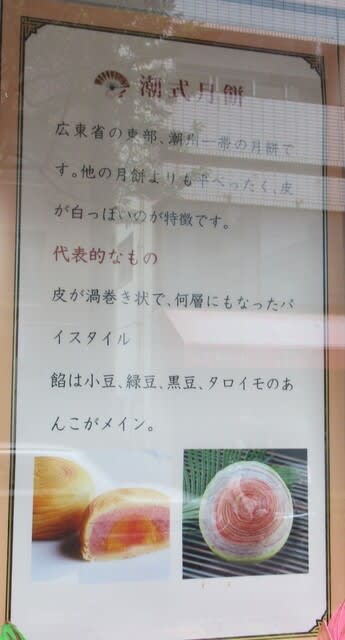 潮式月餅
広東省の東部、潮州一帯の月餅で
す。他の月餅よりも平べったく、皮
が白っぽいのが特徴です。
代表的なもの
皮が渦巻き状で、何層にもなったパ
イスタイル
餡は小豆、緑豆、黒豆、タロイモのあ
んこがメイン。